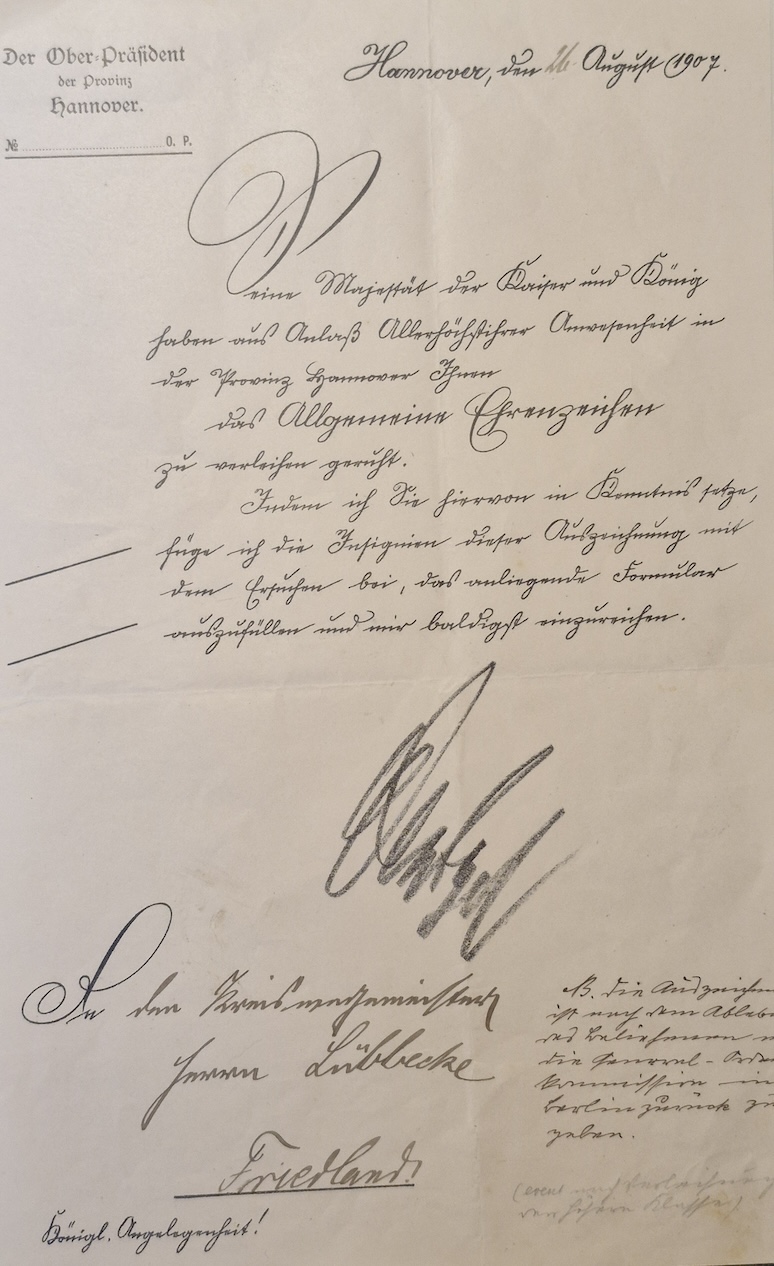 Der Ober-Präsident
der Provinz
Hannover.
№ O. P.
Hannover, den 26. August 1907.
Seine Majestät der Kaiser und König
haben aus Anlaß Allerhöchstihrer Anwesenheit in
der Provinz Hannover Ihnen
das Allgemeine Ehrenzeichen
zu verleihen geruht.
Indem ich Sie hiervon in Kenntnis setze,
füge ich die Insignien dieser Auszeichnung mit
dem Ersuchen bei, das anliegende Formular
auszufüllen und mir baldigst einzureichen.
An den Kreiswegemeister
Herrn Lübbecke
Friedland.
Königl. Angelegenheit!
NB. die Auszeichn
ist nach dem Ableb
des Beliehenen
die General-Orden
kommission in
Berlin zurück zu
geben.
(event nach Verleihung
der höhern Klasse)